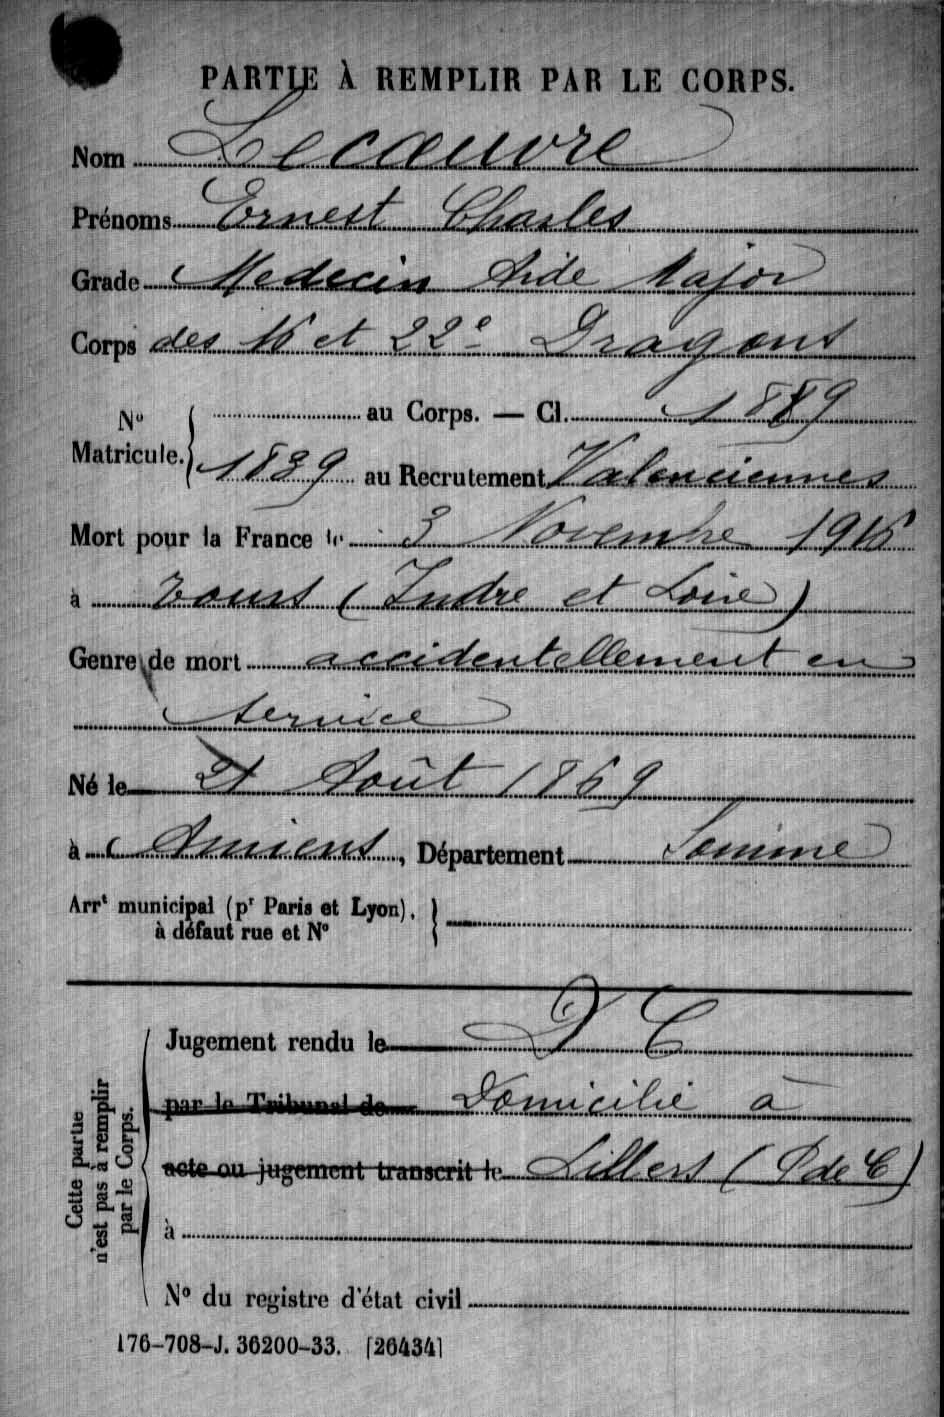 PARTIE À REMPLIR PAR LE CORPS.
Nom Lecœuvre
Prénoms Ernest Charles
Grade Medecin Aide Major
Corps des 16 et 22e Dragons
No Matricule. { au Corps. — Cl. 1889
1839 au Recrutement Valenciennes
Mort pour la France le 3 Novembre 1916
à Tours (Indre et Loire)
Genre de mort accidentellement en
service
Né le 21 Août 1869
à Amiens, Département Somme
Arrt municipal (pr Paris et Lyon),
à défaut rue et No
Cette partie n'est pas à remplir par le Corps.
Jugement rendu le D C
par le Tribunal de Domicilié à
acte ou jugement transcrit le Lillers (P de C)
à
No du registre d'état civil
176-708-J. 36200-33. [26434]